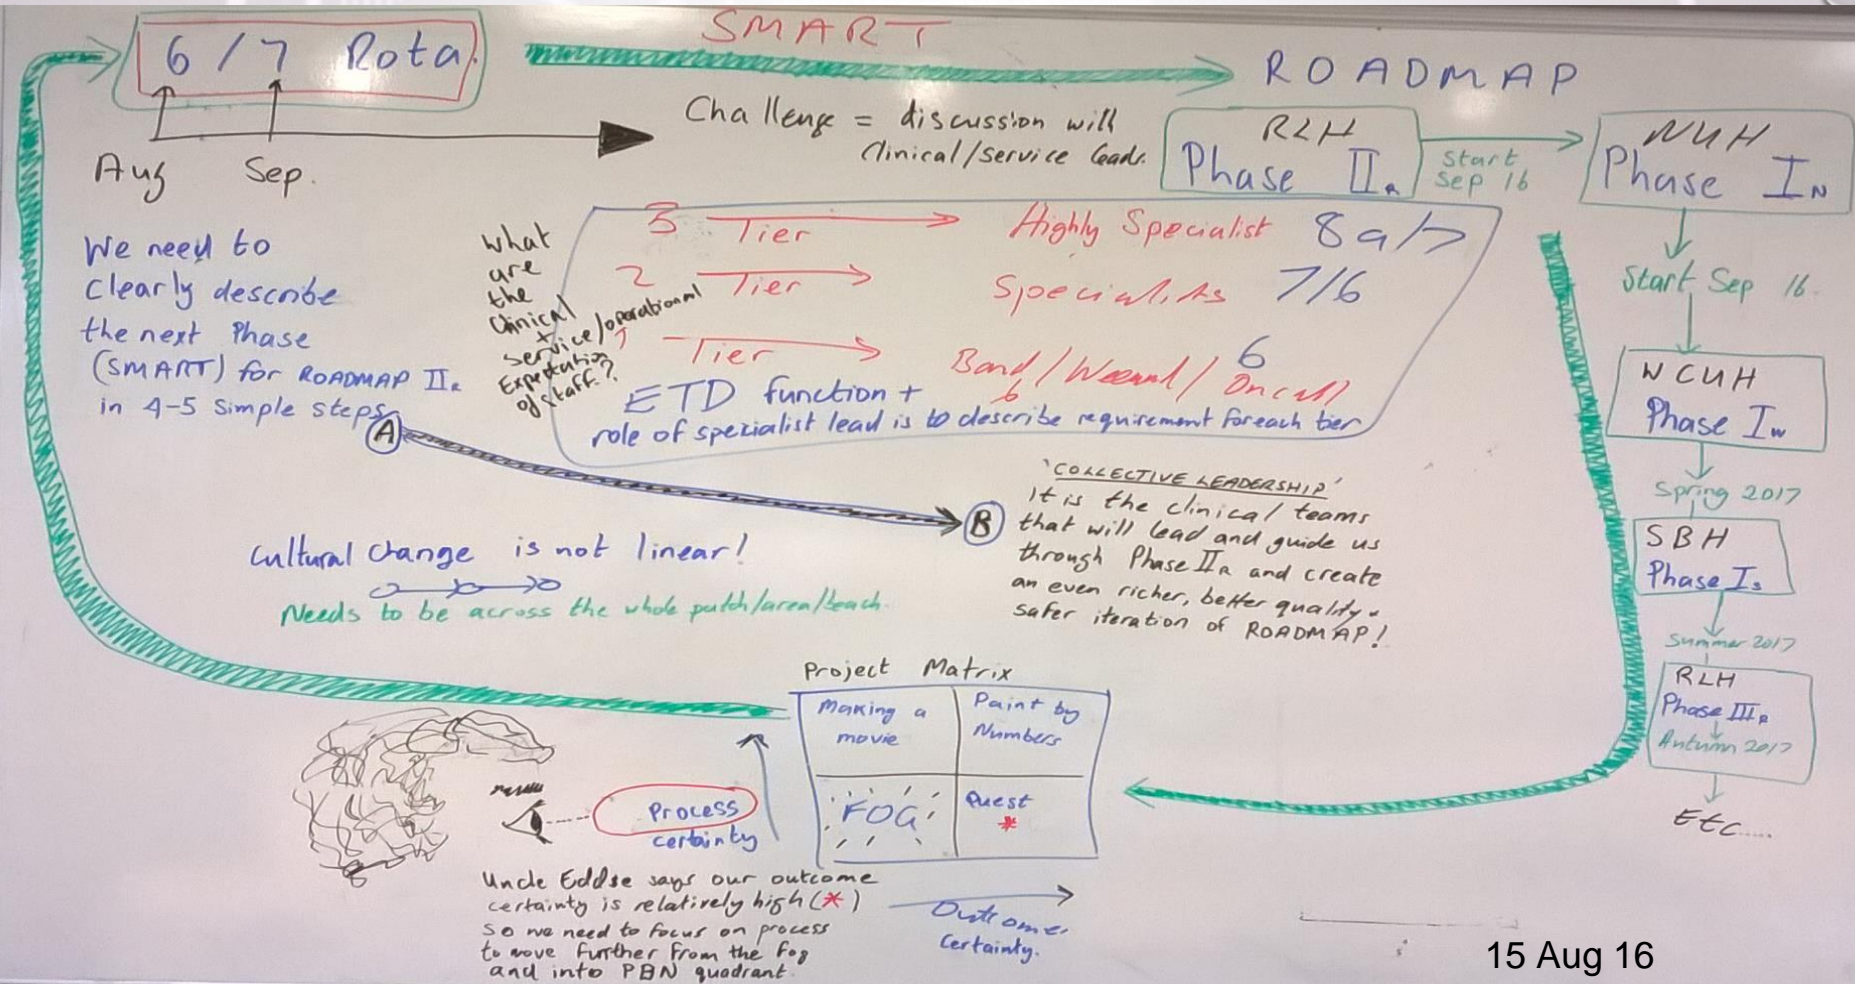 6 / 7 Rota
SMART
ROADMAP
Aug Sep.
Challenge = discussion with
Clinical/Service leads.
RLH
Phase II R
Start
Sep 16
NUH
Phase I N
Start Sep 16.
WCUH
Phase I W
Spring 2017
SBH
Phase I S
Summer 2017
RLH
Phase III R
Autumn 2017
Etc.....
We need to
clearly describe
the next Phase
(SMART) for ROADMAP II R
in 4-5 simple steps
A
What
are
the
Clinical
+
service/operational
Expectation
of staff?
3 Tier Highly Specialist 8a/7
2 Tier Specialists 7/6
1 Tier Band 6/Weekend/Oncall 6
ETD function +
role of specialist lead is to describe requirement for each tier
B
'COLLECTIVE LEADERSHIP'
it is the clinical teams
that will lead and guide us
through Phase II R and create
an even richer, better quality +
safer iteration of ROADMAP!
Cultural change is not linear!
Needs to be across the whole patch/area/beach.
Project Matrix
Making a
movie
Paint by
Numbers
FOG
Quest
*
Process
certainty
Outcome
Certainty.
Uncle Eddie says our outcome
certainty is relatively high (*)
so we need to focus on process
to move further from the fog
and into PBN quadrant.
15 Aug 16